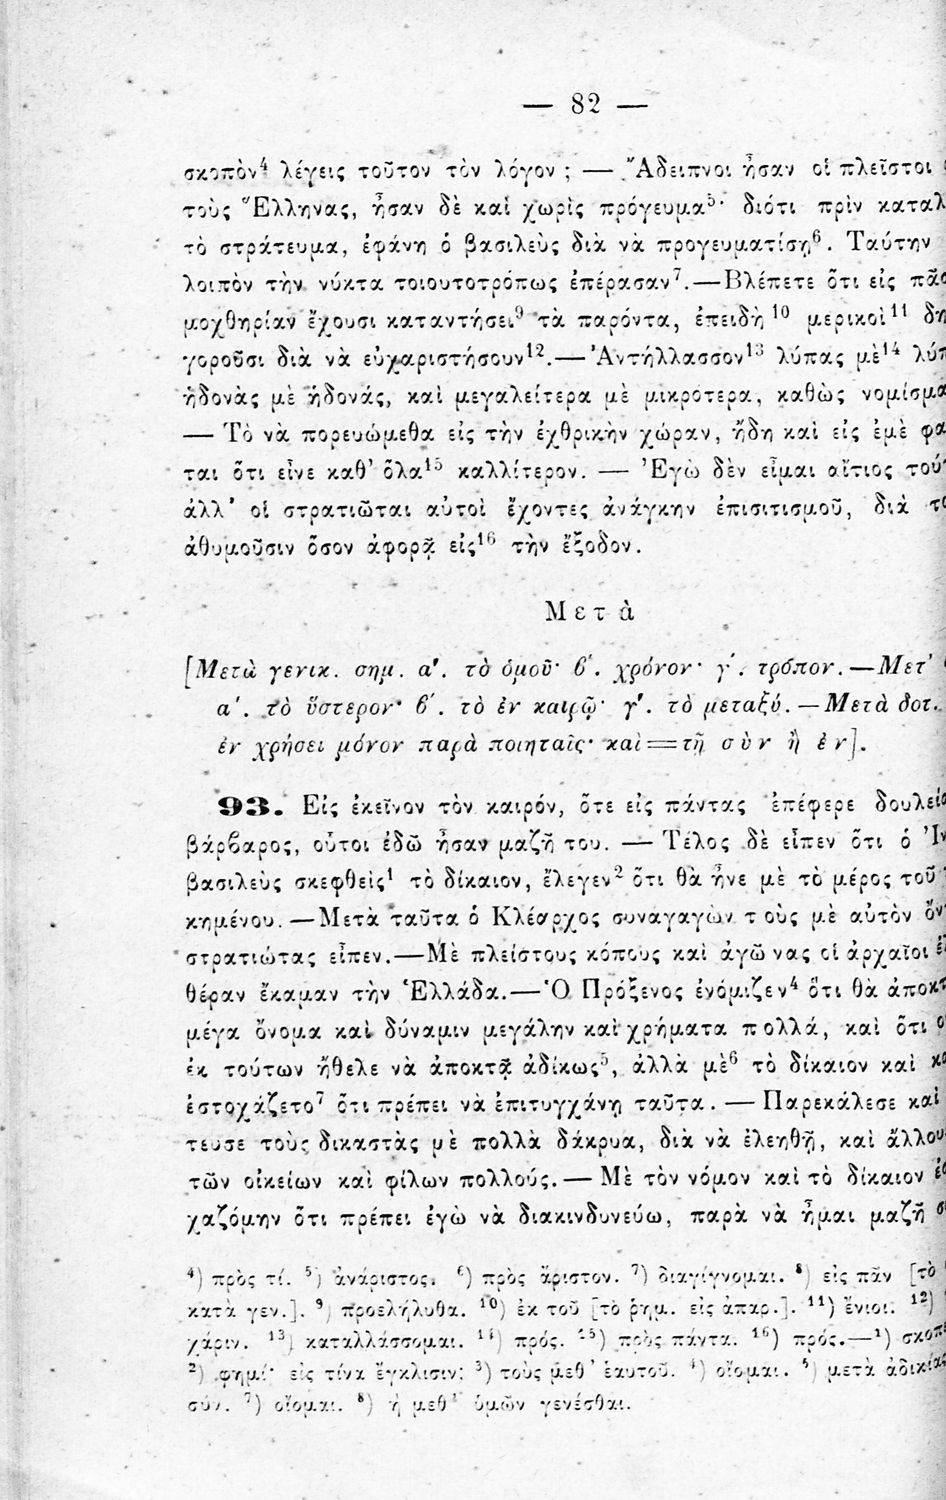 — 82 —
σκοπὸν⁴ λέγεις τοῦτον τὸν λόγον ; — Ἄδειπνοι ἦσαν οἱ πλεῖστοι
τοὺς Ἕλληνας, ἦσαν δὲ καὶ χωρὶς πρόγευμα⁵· διότι πρὶν καταλ
τὸ στράτευμα, ἐφάνη ὁ βασιλεὺς διὰ νὰ προγευματίσῃ⁶. Ταύτην
λοιπὸν τὴν νύκτα τοιουτοτρόπως ἐπέρασαν⁷.—Βλέπετε ὅτι εἰς πᾶσ
μοχθηρίαν ἔχουσι καταντήσει⁹ τὰ παρόντα, ἐπειδὴ¹⁰ μερικοὶ¹¹ δη
γοροῦσι διὰ νὰ εὐχαριστήσουν¹².—Ἀντήλλασσον¹³ λύπας μὲ¹⁴ λύπ
ἡδονὰς μὲ ἡδονάς, καὶ μεγαλείτερα μὲ μικρότερα, καθὼς νομίσμα
— Τὸ νὰ πορευώμεθα εἰς τὴν ἐχθρικὴν χώραν, ἤδη καὶ εἰς ἐμὲ φα
ται ὅτι εἶνε καθ' ὅλα¹⁵ καλλίτερον. — Ἐγὼ δὲν εἶμαι αἴτιος τού
ἀλλ' οἱ στρατιῶται αὐτοὶ ἔχοντες ἀνάγκην ἐπισιτισμοῦ, διὰ το
ἀθυμοῦσιν ὅσον ἀφορᾷ εἰς¹⁶ τὴν ἔξοδον.
Μετὰ
[Μετὰ γενικ. σημ. α'. τὸ ὁμοῦ· β'. χρόνον· γ'. τρόπον.—Μετ'
α'. τὸ ὕστερον· β'. τὸ ἐν καιρῷ· γ'. τὸ μεταξύ.—Μετὰ δοτ.
ἐν χρήσει μόνον παρὰ ποιηταῖς· καὶ=τῇ σὺν ἢ ἐν].
93. Εἰς ἐκεῖνον τὸν καιρόν, ὅτε εἰς πάντας ἐπέφερε δουλεία
βάρβαρος, οὗτοι ἐδῶ ἦσαν μαζῆ του. — Τέλος δὲ εἶπεν ὅτι ὁ Ἰν
βασιλεὺς σκεφθεὶς¹ τὸ δίκαιον, ἔλεγεν² ὅτι θὰ ἦνε μὲ τὸ μέρος τοῦ
κημένου.—Μετὰ ταῦτα ὁ Κλέαρχος συναγαγὼν τοὺς μὲ αὐτὸν ὄν
στρατιώτας εἶπεν.—Μὲ πλείστους κόπους καὶ ἀγῶνας οἱ ἀρχαῖοι ἐλ
θέραν ἔκαμαν τὴν Ἑλλάδα.—Ὁ Πρόξενος ἐνόμιζεν⁴ ὅτι θὰ ἀποκτ
μέγα ὄνομα καὶ δύναμιν μεγάλην καὶ χρήματα πολλά, καὶ ὅτι ο
ἐκ τούτων ἤθελε νὰ ἀποκτᾷ ἀδίκως⁵, ἀλλὰ μὲ⁶ τὸ δίκαιον καὶ κα
ἐστοχάζετο⁷ ὅτι πρέπει νὰ ἐπιτυγχάνῃ ταῦτα. — Παρεκάλεσε καὶ
τευσε τοὺς δικαστὰς μὲ πολλὰ δάκρυα, διὰ νὰ ἐλεηθῇ, καὶ ἄλλου
τῶν οἰκείων καὶ φίλων πολλούς.— Μὲ τὸν νόμον καὶ τὸ δίκαιον ἐσ
χαζόμην ὅτι πρέπει ἐγὼ νὰ διακινδυνεύω, παρὰ νὰ ἦμαι μαζῆ σ
⁴) πρὸς τί. ⁵) ἀνάριστος. ⁶) πρὸς ἄριστον. ⁷) διαγίγνομαι. ⁸) εἰς πᾶν [τὸ
κατὰ γεν.]. ⁹) προελήλυθα. ¹⁰) ἐκ τοῦ [τὸ ῥημ. εἰς ἀπαρ.]. ¹¹) ἔνιοι. ¹²)
χάριν. ¹³) καταλλάσσομαι. ¹⁴) πρός. ¹⁵) πρὸς πάντα. ¹⁶) πρός.—¹) σκοπ
²) φημί· εἰς τίνα ἔγκλισιν; ³) τοὺς μεθ' ἑαυτοῦ. ⁴) οἴομαι. ⁵) μετὰ ἀδικίας
σύν. ⁷) οἴομαι. ⁸) ἢ μεθ' ὑμῶν γενέσθαι.